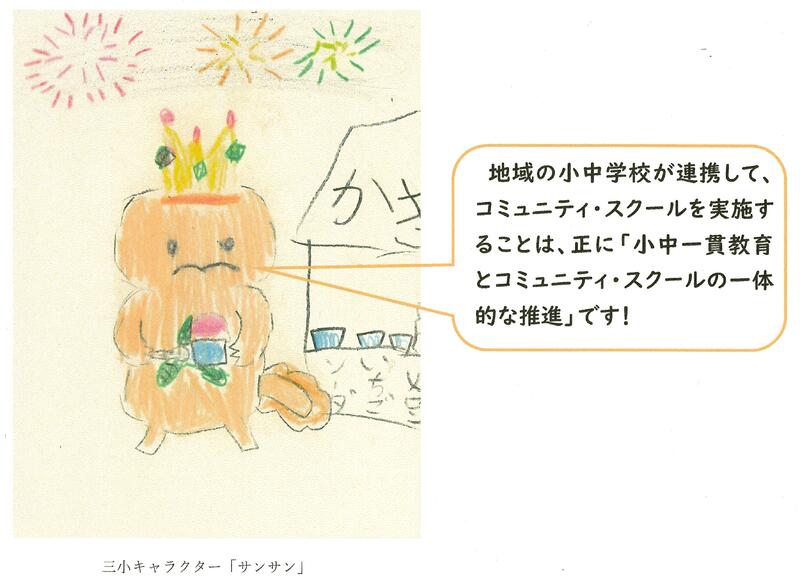 地域の小中学校が連携して、
コミュニティ・スクールを実施す
ることは、正に「小中一貫教育
とコミュニティ・スクールの一体
的な推進」です!
かき
いちご
ソーダ
三小キャラクター「サンサン」